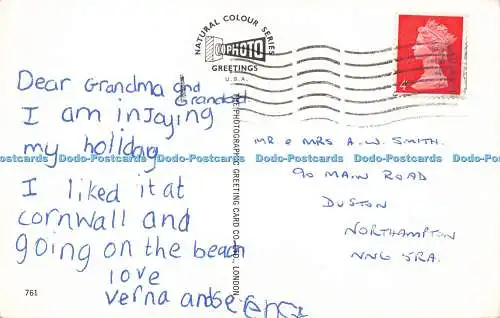 NATURAL COLOUR SERIES
PHOTO
GREETINGS
U.S.A.
4
Dear Grandma and
Grandad
I am injoying
my holiday
I liked it at
cornwall and
going on the beach
love
verna and
THE PHOTOGRAPHIC GREETING CARD CO. LTD., LONDON.
MR & MRS A.W. SMITH.
90 MAIN ROAD
DUSTON
NORTHAMPTON
NN5 5RA.
Dodo-Postcards Dodo-Postcards Dodo-Postcards Dodo-Postcards Dodo-Postcards
761